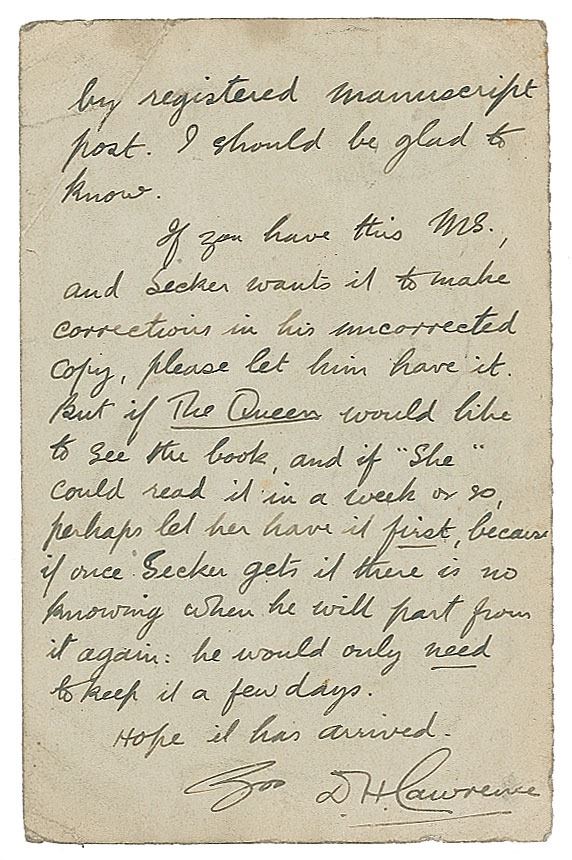 by registered manuscript
post. I should be glad to
know.
If you have this MS.,
and Secker wants it to make
corrections in his uncorrected
copy, please let him have it.
But if The Queen would like
to see the book, and if "She"
could read it in a week or so,
perhaps let her have it first, because
if once Secker gets it there is no
knowing when he will part from
it again: he would only need
to keep it a few days.
Hope it has arrived.
D. H. Lawrence